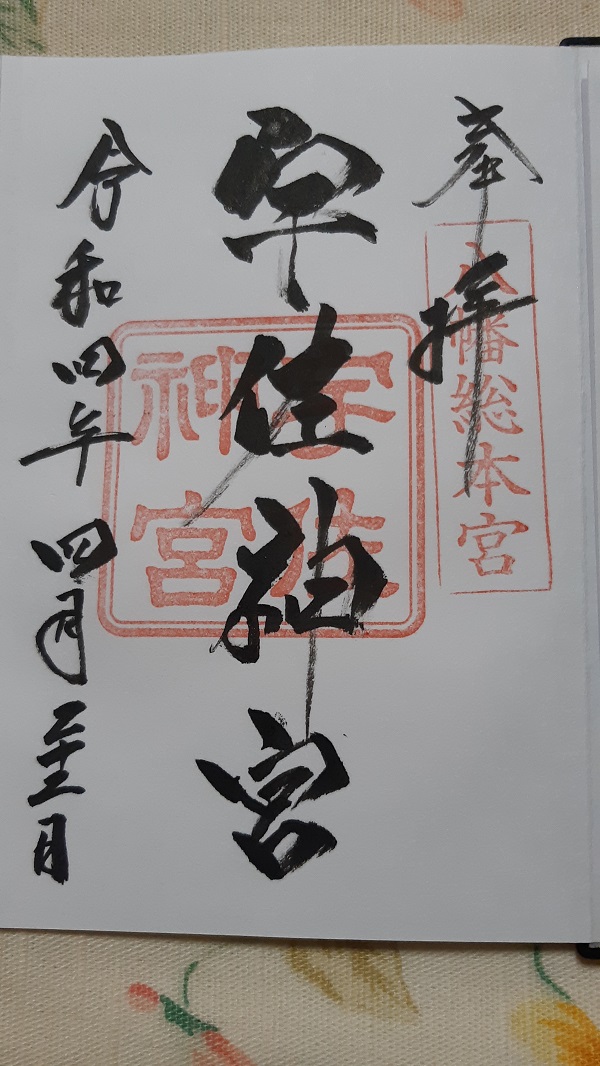 奉拝
八幡総本宮
宇佐神宮
宇佐
神宮
令和四年四月二十二日